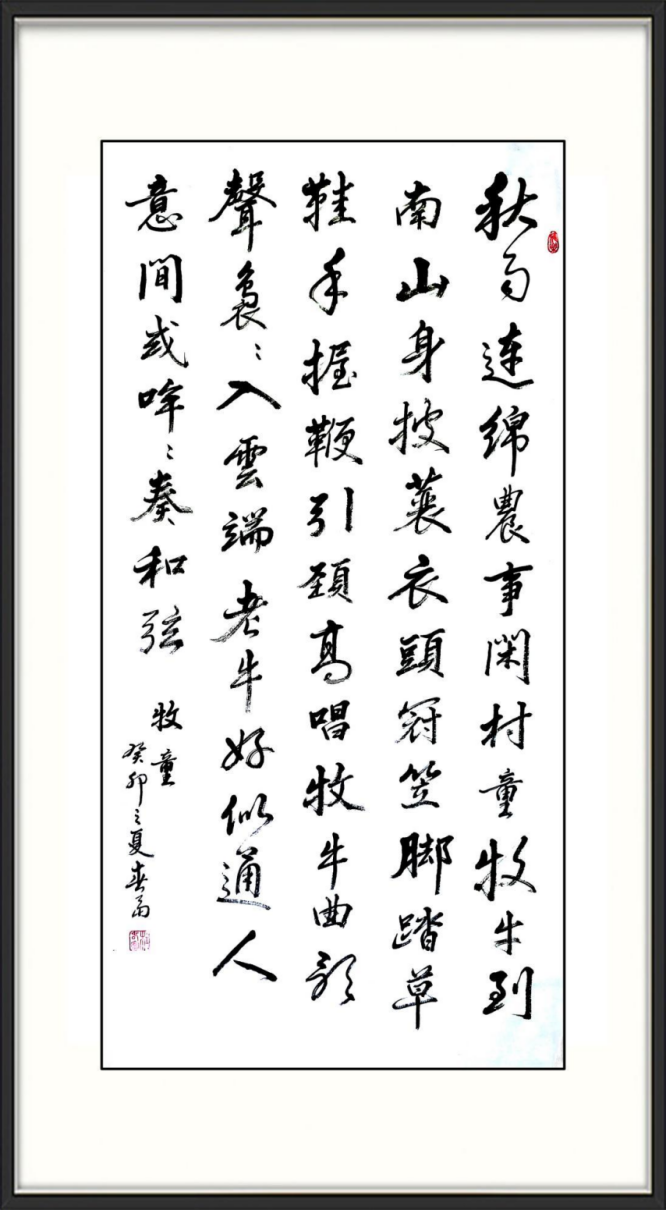 秋雨連綿農事閑村童牧牛到
南山身披蓑衣頭冠笠腳踏草
鞋手握鞭引頸高唱牧牛曲歌
聲裊〻入雲端老牛好似通人
意間或哞〻奏和弦
牧童
癸卯之夏春雨